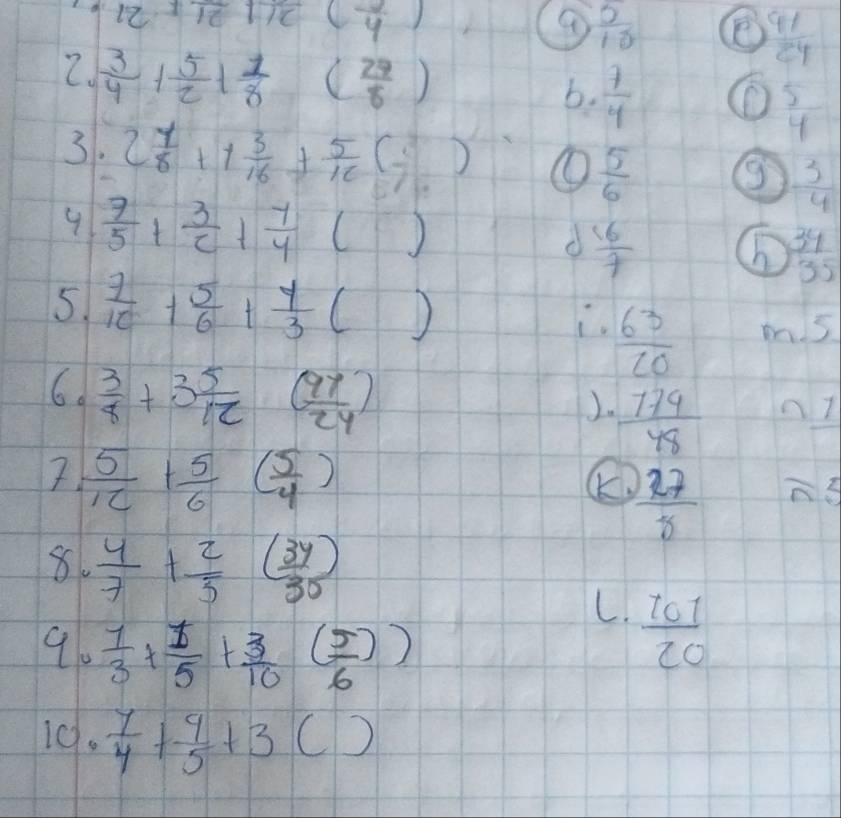 2. 3/4 + 5/2 + 1/8 (27/8)
3. 2 1/8 + 1 3/16 + 5/12 ( )
4. 7/5 + 3/2 + 1/4 ( )
5. 7/12 + 5/6 + 1/3 ( )
6. 3/8 + 3 5/12 (91/24)
7. 5/12 + 5/6 (5/4)
8. 4/7 + 2/5 (34/35)
9. 1/3 + 1/5 + 3/10 (5/6))
10. 1/4 + 9/5 + 3 ( )
b. 7/4
5/6
d. 6/7
i. 63/20
j. 179/48
k. 27/8
l. 101/20
e 91/24
f 5/4
g 3/4
h 34/35
m. 5
n 7